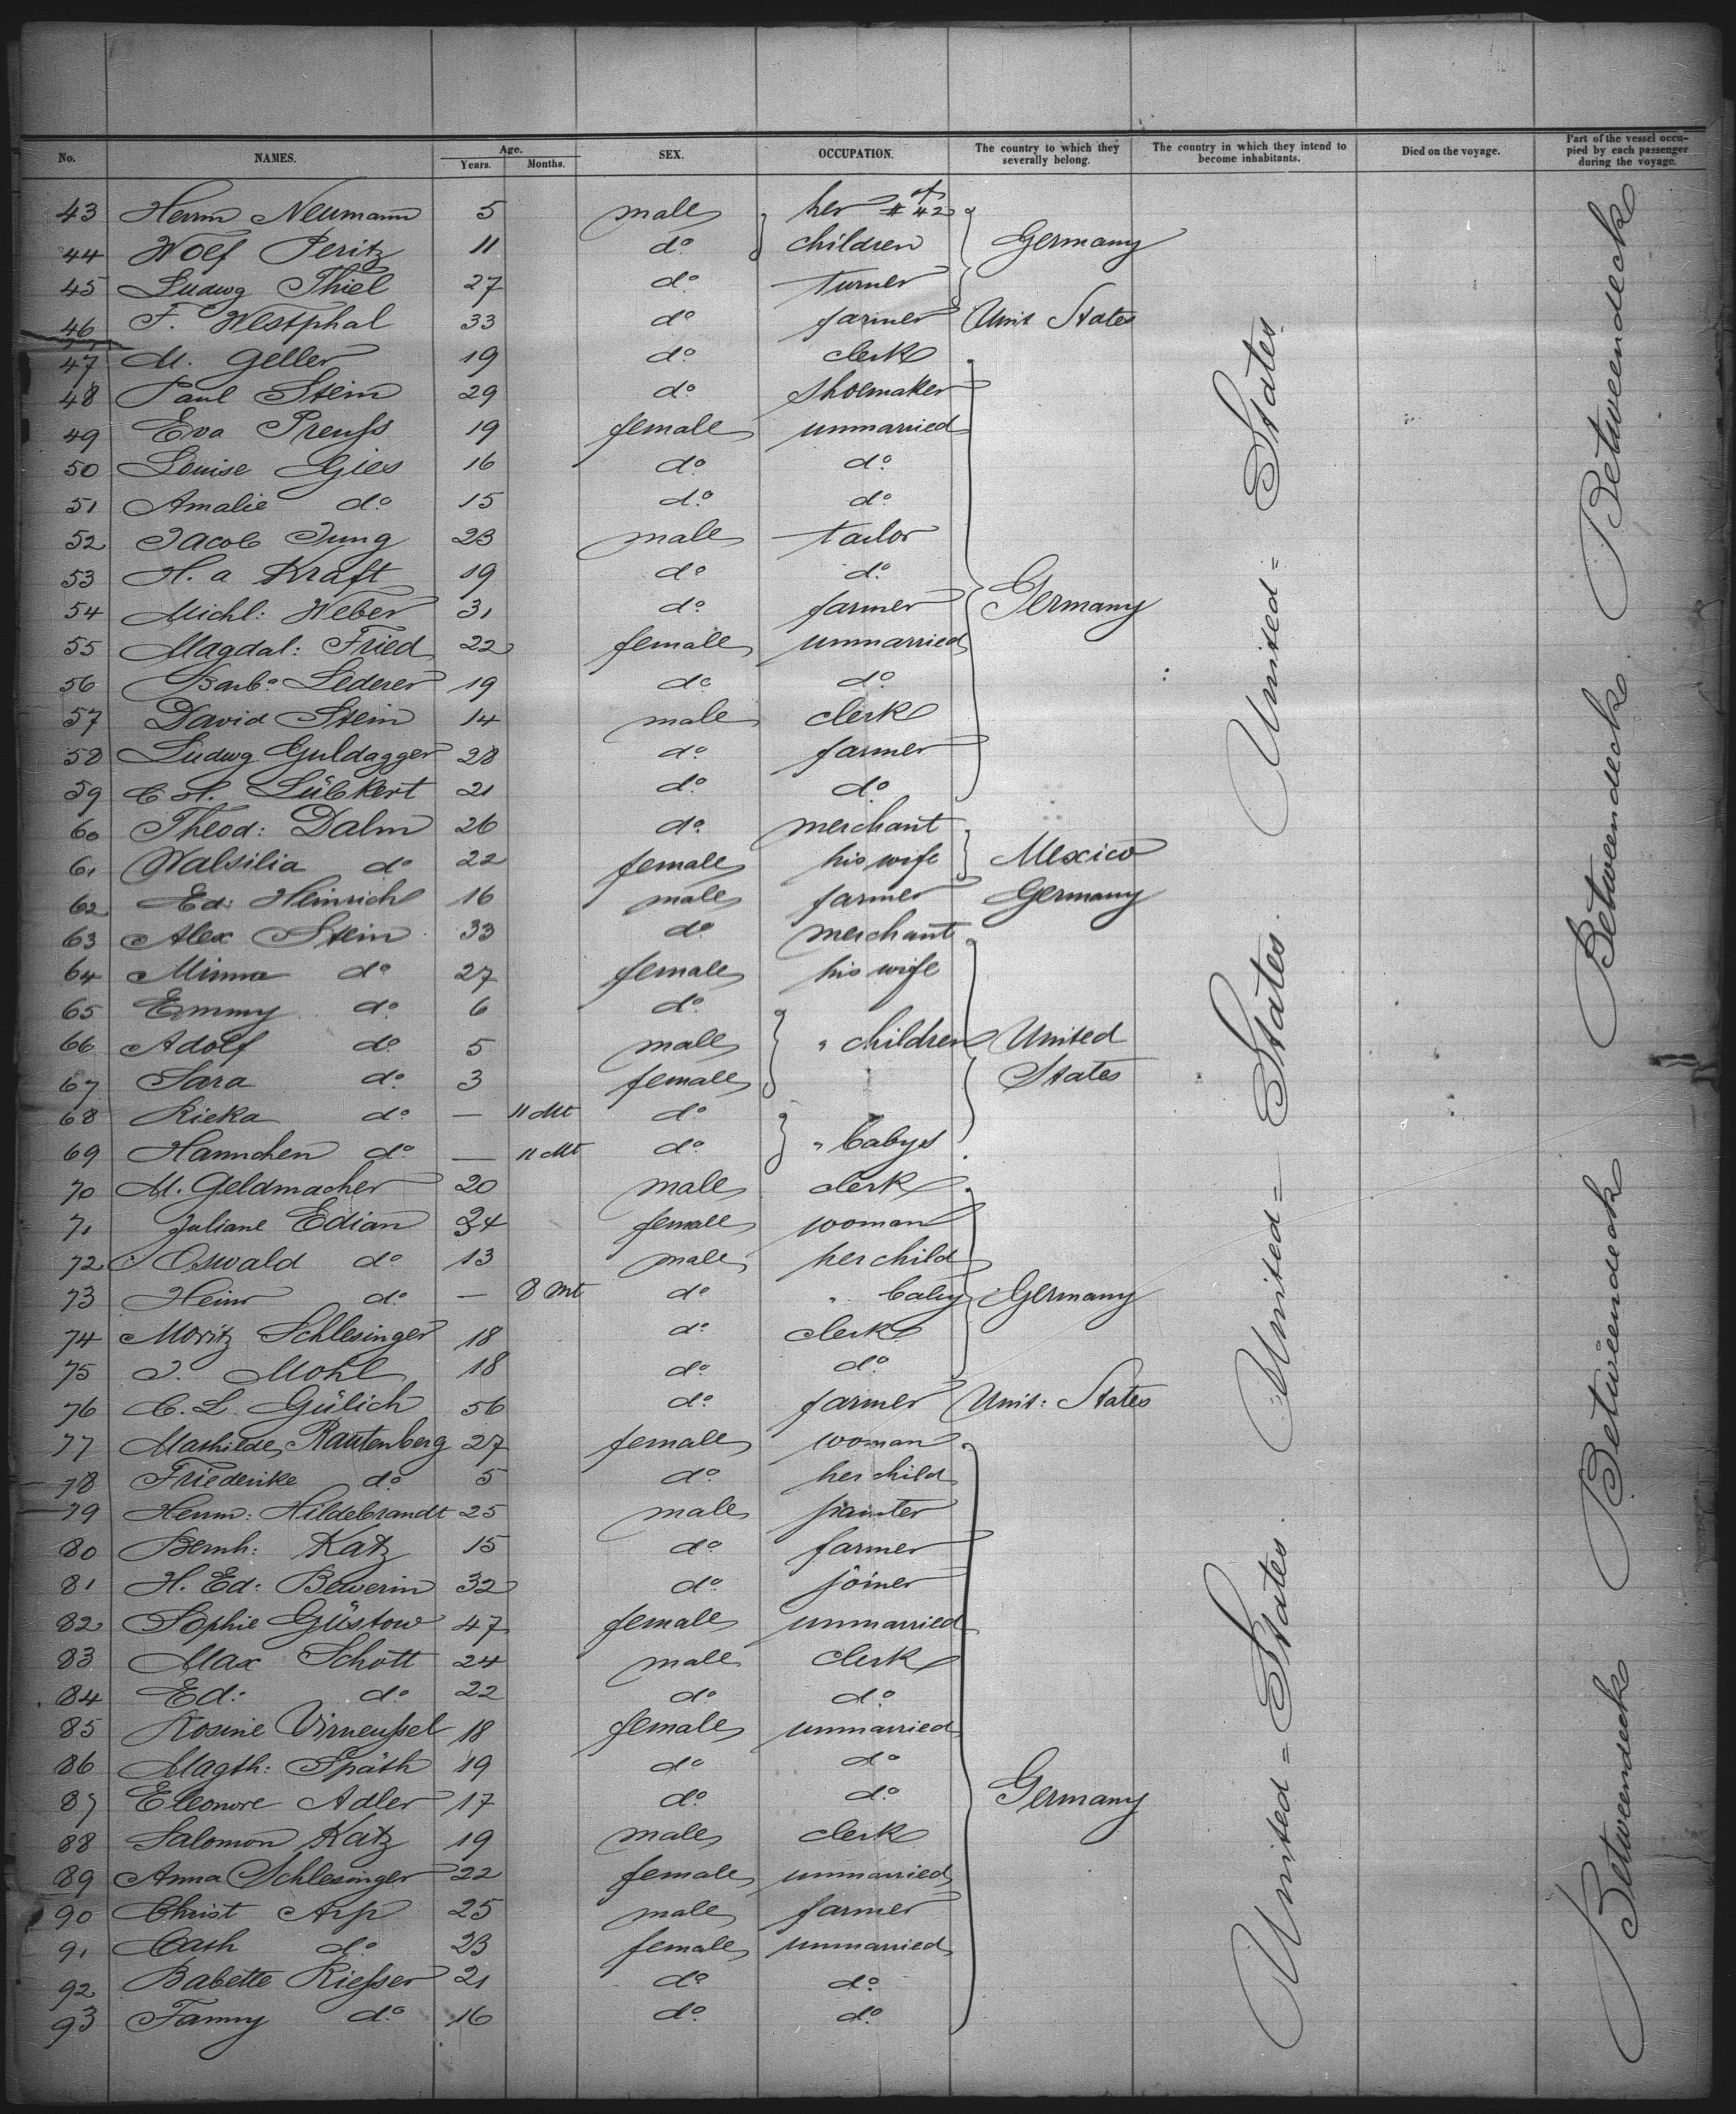 No. NAMES. Age. Years. Months. SEX. OCCUPATION. The country to which they severally belong. The country in which they intend to become inhabitants. Died on the voyage. Part of the vessel occupied by each passenger during the voyage.
43 Herm Neumann 5 male her of # 42
44 Wolf Peritz 11 do children Germany
45 Ludwg Thiel 27 do turner
46 F. Westphal 33 do farmer Unit States
47 M. Geller 19 do clerk
48 Paul Stein 29 do shoemaker
49 Eva Preuß 19 female unmarried
50 Louise Gies 16 do do
51 Amalie do 15 do do
52 Jacob Jung 23 male tailor
53 H. a Kraft 19 do do
54 Michl: Weber 31 do farmer Germany
55 Magdal: Fried 22 female unmarried
56 Barba Lederer 19 do do
57 David Stein 14 male clerk
58 Ludwg Guldagger 28 do farmer
59 C H. Lübkert 21 do do
60 Theod: Dalm 26 do merchant
61 Walsilia do 22 female his wife Mexico
62 Ed: Heinrich 16 male farmer Germany
63 Alex Stein 33 do merchant
64 Minna do 27 female his wife
65 Emmy do 6 do
66 Adolf do 5 male " children United
67 Sara do 3 female States
68 Rieka do — 11 Mt do
69 Hannchen do — 11 Mt do " babys
70 M. Geldmacher 20 male clerk
71 Juliane Edian 34 female woman
72 Oswald do 13 male her child
73 Heinr do — 8 Mt do " baby Germany
74 Moritz Schlesinger 18 do clerk
75 J. Mohl 18 do do
76 C. L. Gülich 56 do farmer Unit: States
77 Mathilde Rautenberg 27 female woman
78 Friederike do 5 do her child
79 Herm: Hildebrandt 25 male painter
80 Bernh: Katz 15 do farmer
81 H. Ed: Bewerin 32 do joiner
82 Sophie Güstow 47 female unmarried
83 Max Schott 24 male clerk
84 Ed: do 22 do do
85 Rosine Virneußel 18 female unmarried
86 Magth: Späth 19 do do
87 Eleonore Adler 17 do do Germany
88 Salomon Katz 19 male clerk
89 Anna Schlesinger 22 female unmarried
90 Christ Arp 25 male farmer
91 Cath do 23 female unmarried
92 Babette Rießer 21 do do
93 Fanny do 16 do do
United = States.
United = States.
United = States.
Betweendeck
Betweendeck
Betweendeck
Betweendeck